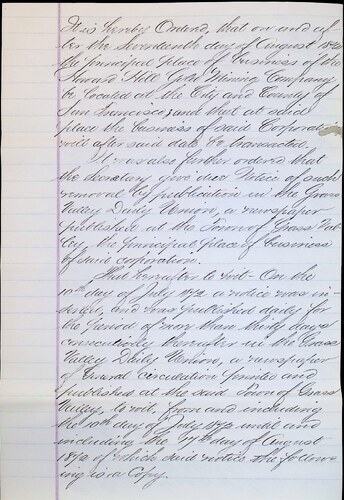 It is hereby Ordered, that on and af-
ter the Seventeenth day of August 1872
the principal place of business of the
Seward Hill Gold Mining Company
be located at the City and County of
San Francisco, and that at said
place the business of said Corporation
will after said date be transacted.
It was also further ordered that
the Secretary give due Notice of such
removal by publication in the Grass
Valley Daily Union, a newspaper
published at the Town of Grass Val-
ley, the principal place of business
of said corporation.
That hereafter to wit – On the
day of July 1872 a notice was in-
serted, and was published daily for
the period of more than thirty days
consecutively thereafter in the Grass
Valley Daily Union, a newspaper
of general circulation printed and
published at the said Town of Grass
Valley, to wit, from and including
the day of July 1872 until and
including the 17th day of August
1872 of which said notice the follow-
ing is a Copy.